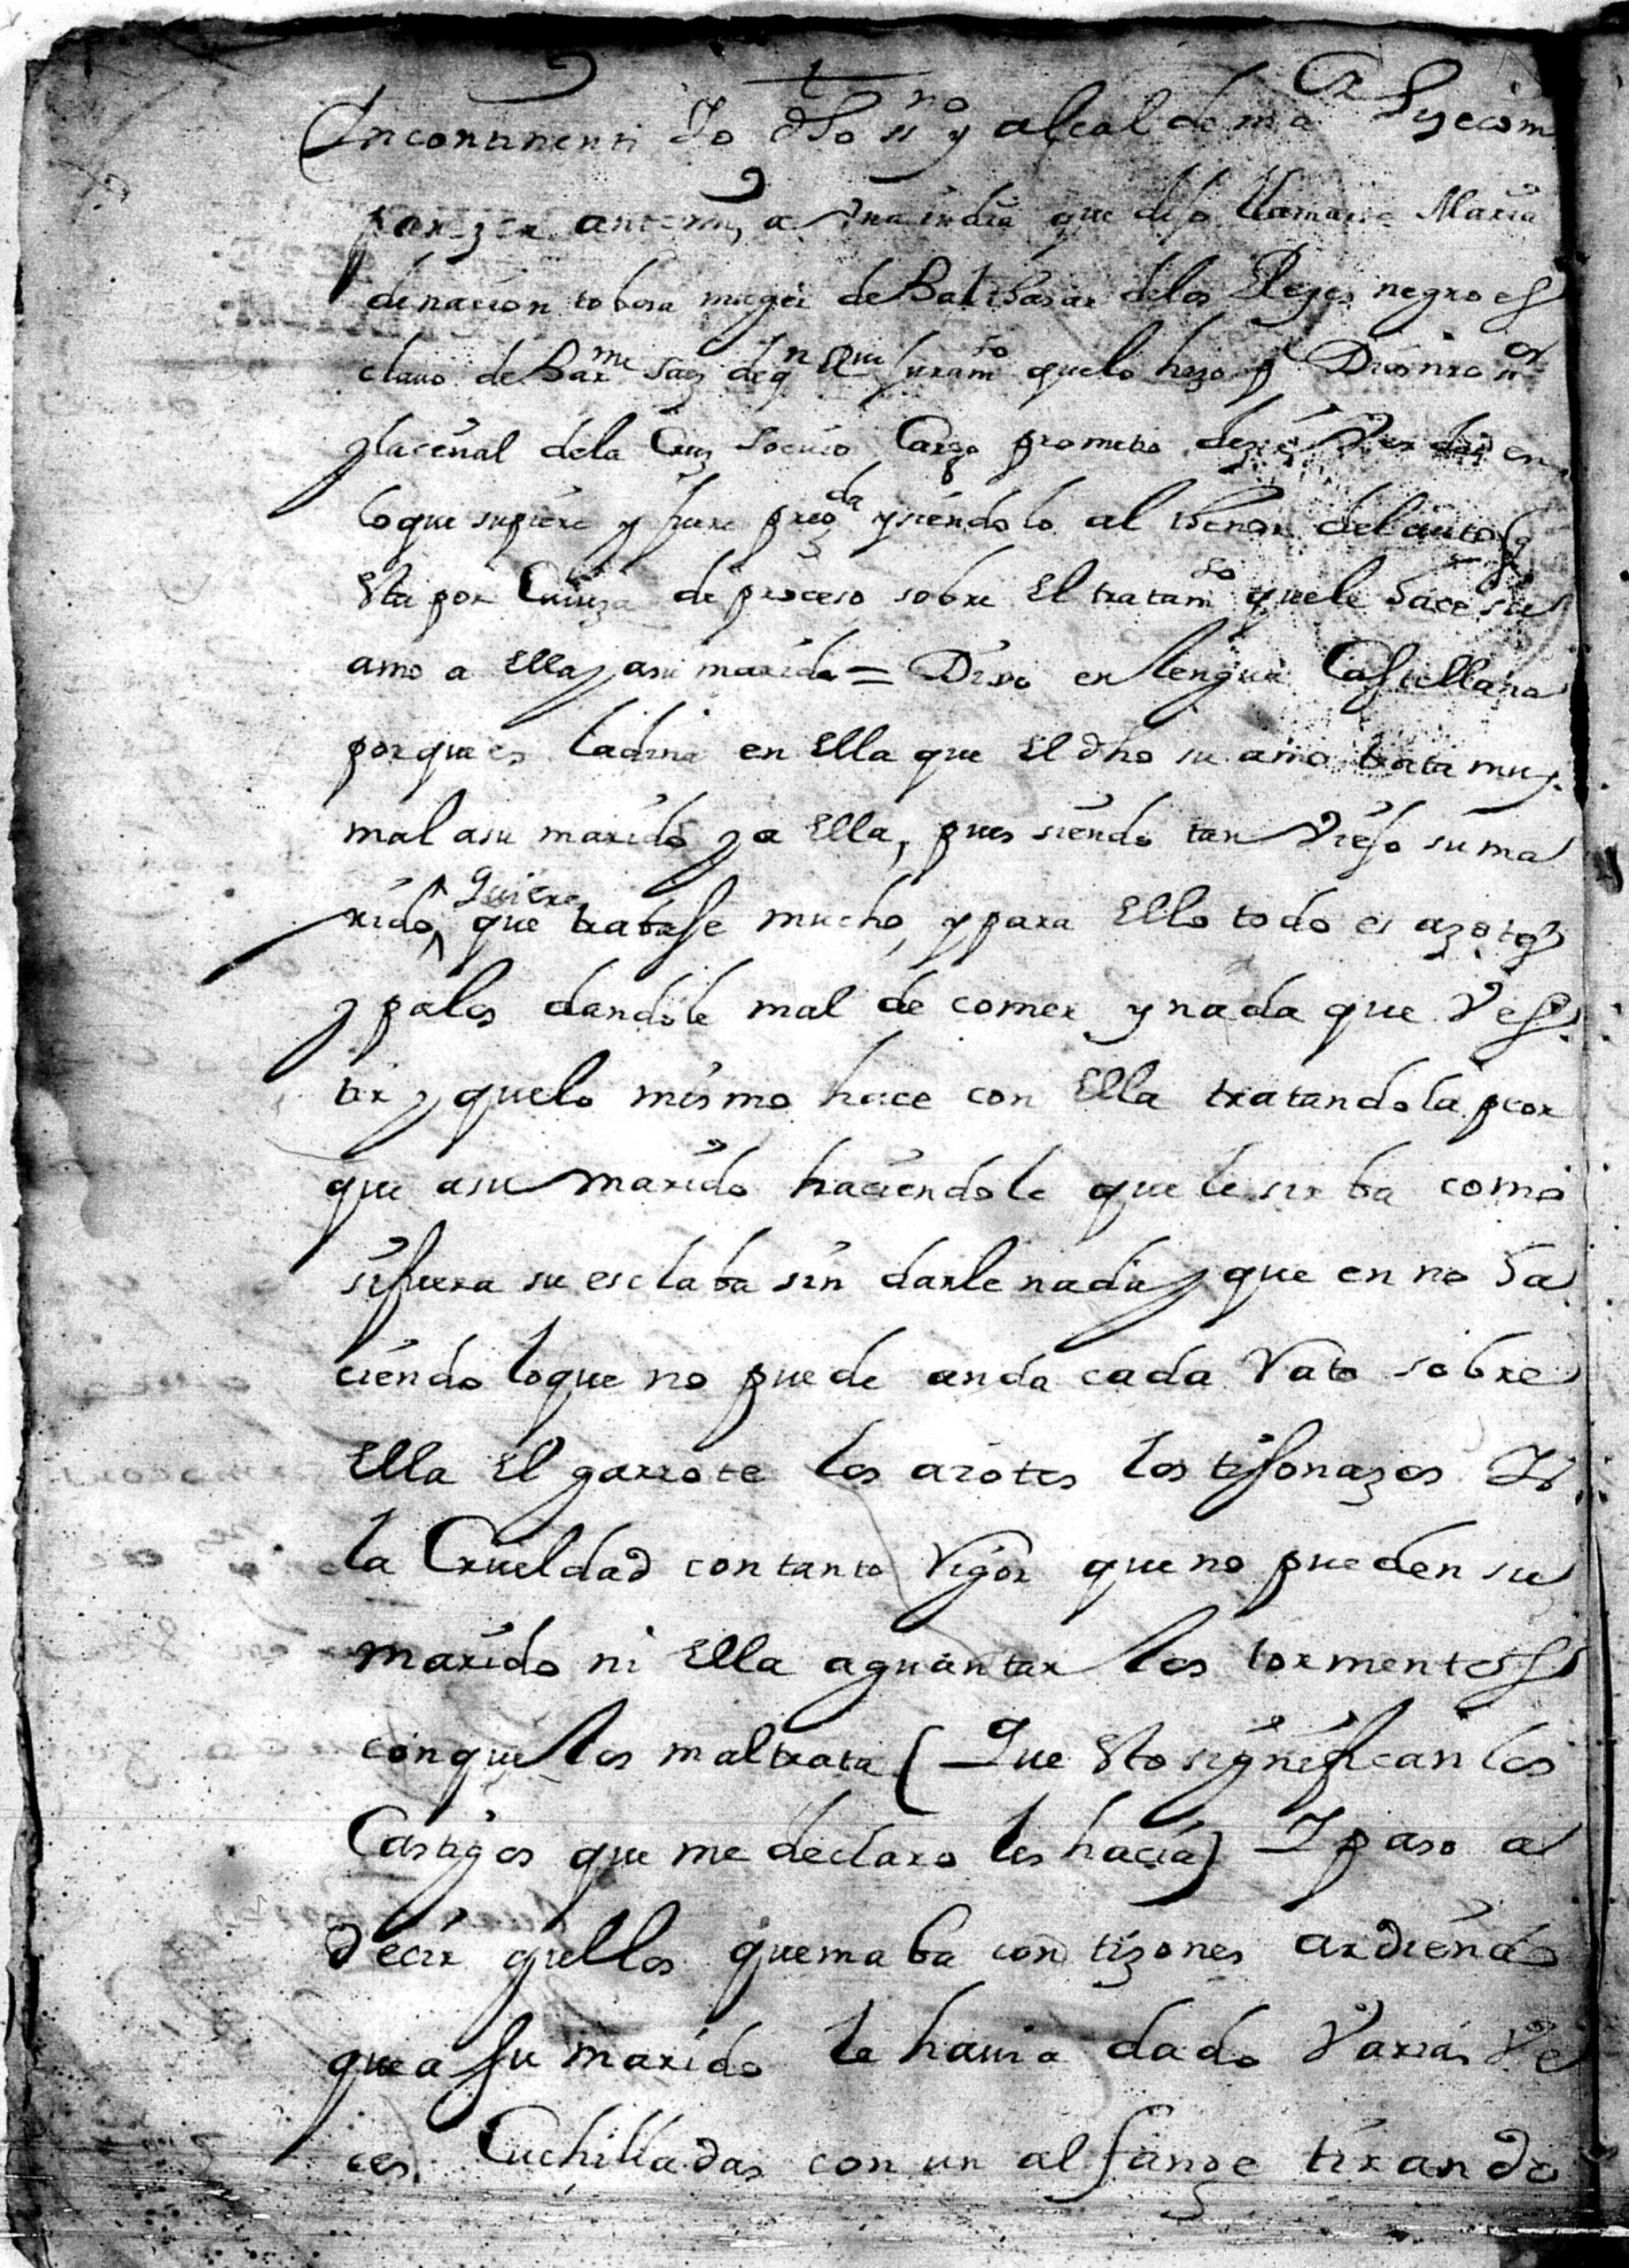 Incontinenti Yo dho ss.no y alcalde ma.or hize com
parezer ante mi, a Vna india que dijo llamarse Maria
de nacion tobosa muger de Balthasar delos Reyes negro es
clauo de Bar.me Saez de q.n Rui juram.to quelo hizo p.r Dios nro s.or
y la cenal dela Cruz so cuio Cargo prometio dezir Verdad en
lo que supiere y fuere preg.da y siendolo al thenor del auto q
Esta por Caueza de proceso sobre El tratam.to quele hace su
amo a Ella y asu marido = Dixo en lengua Castellana
porque es ladina en Ella que El dho su amo trata muy
mal asu marido y a Ella, pues siendo tan Viejo su ma
rido, quiere que trabaje mucho, y para Ello todo es azotes
y palos dandole mal de comer y nada que Ves
tir y quelo mismo hace con Ella tratandola peor
que asu marido haciendole que le sirba como
si fuera su esclaba sin darle nada y que en no ha
ciendo loque no puede anda cada Rato sobre
Ella El garrote los azotes los tisonazos Y
la Crueldad con tanto Rigor que no pueden su
marido ni Ella aguantar los tormentos
conque los maltrata (Que Esto significan los
Castigos que me declaro les hacia) Y paso a
decir q.ellos quemaba con tizones ardiendo
que a su marido le hauia dado Varias Ve
ces Cuchilladas con un alfange tirando